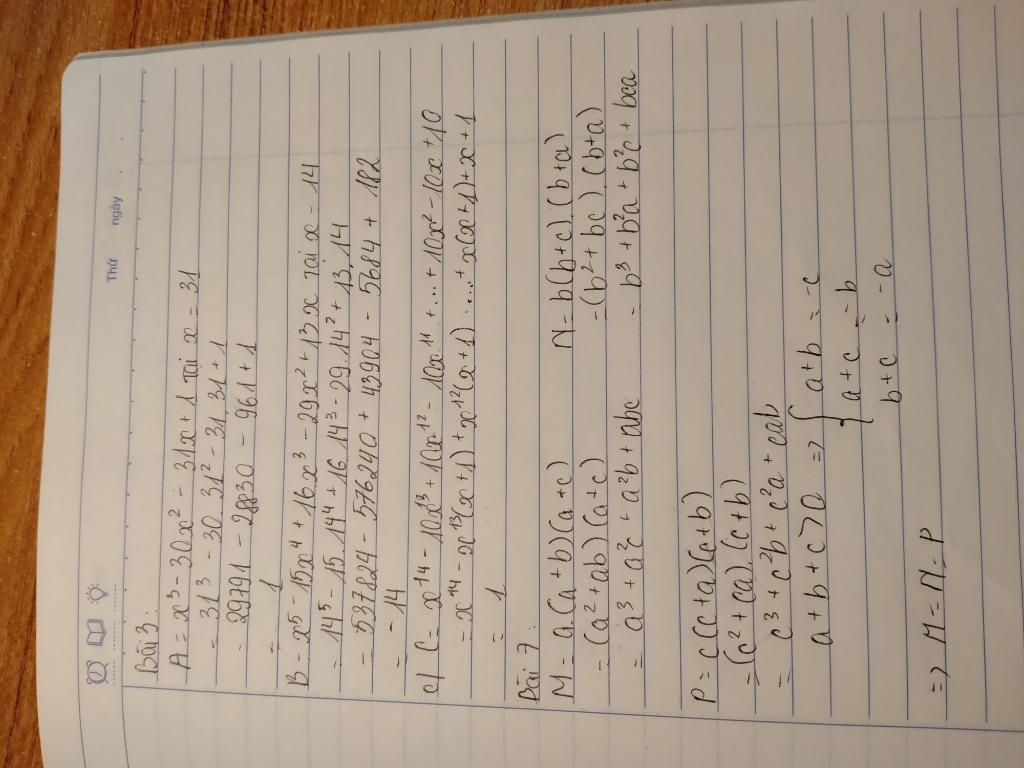 Thứ ngày
Bài 3:
A = x³ - 30x² - 31x + 1 tại x = 31
= 31³ - 30.31² - 31.31 + 1
= 29791 - 28830 - 961 + 1
= 1
B = x⁵ - 15x⁴ + 16x³ - 29x² + 13x tại x = 14
= 14⁵ - 15.14⁴ + 16.14³ - 29.14² + 13.14
= 537824 - 576240 + 43904 - 5684 + 182
= -14
c) C = x¹⁴ - 10x¹³ + 10x¹² - 10x¹¹ + ... + 10x² - 10x + 10
= x¹⁴ - x¹³(x+1) + x¹²(x+1) .... + x(x+1) + x + 1
= 1
Bài 7:
M = a(a+b)(a+c) N = b(b+c).(b+a)
= (a²+ab)(a+c) = (b²+bc).(b+a)
= a³ + a²c + a²b + abc = b³ + b²a + b²c + bca
P = c(c+a)(c+b)
= (c²+ca).(c+b)
= c³ + c²b + c²a + cab
a+b+c>0 => { a+b = -c
a+c = -b
b+c = -a
=> M = N = P